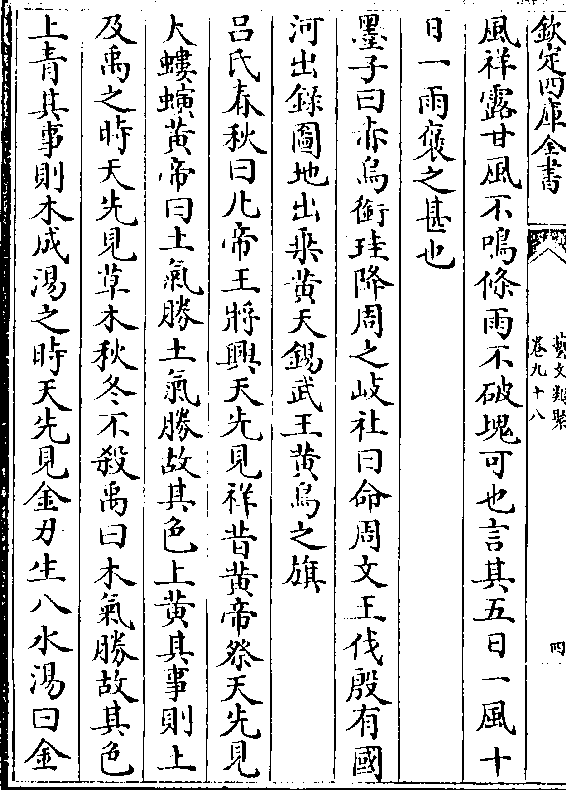 欽定四庫全書
藝文類聚
卷九十八
四
風祥露甘風不鳴條雨不破塊可也言其五日一風十
日一雨褒之甚也
墨子曰赤烏銜珪降周之岐社曰命周文王伐殷有國
河出錄圖地出乗黄天錫武王黄鳥之旗
吕氏春秋曰凡帝王將興天先見祥昔黄帝祭天先見
大螻螾黄帝曰土氣勝土氣勝故其色上黄其事則上
及禹之時天先見草木秋冬不殺禹曰木氣勝故其色
上青其事則木成湯之時天先見金刃生八水湯曰金